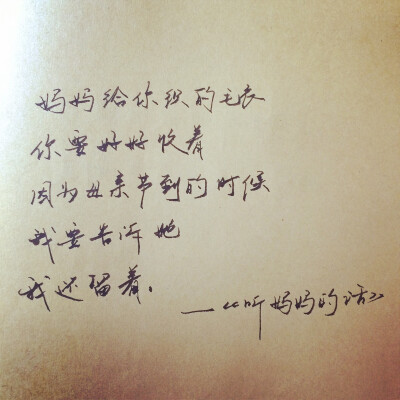 妈妈给你织的毛衣
你要好好收着
因为母亲节到的时候
我要告诉她
我还留着.
—《听妈妈的话》